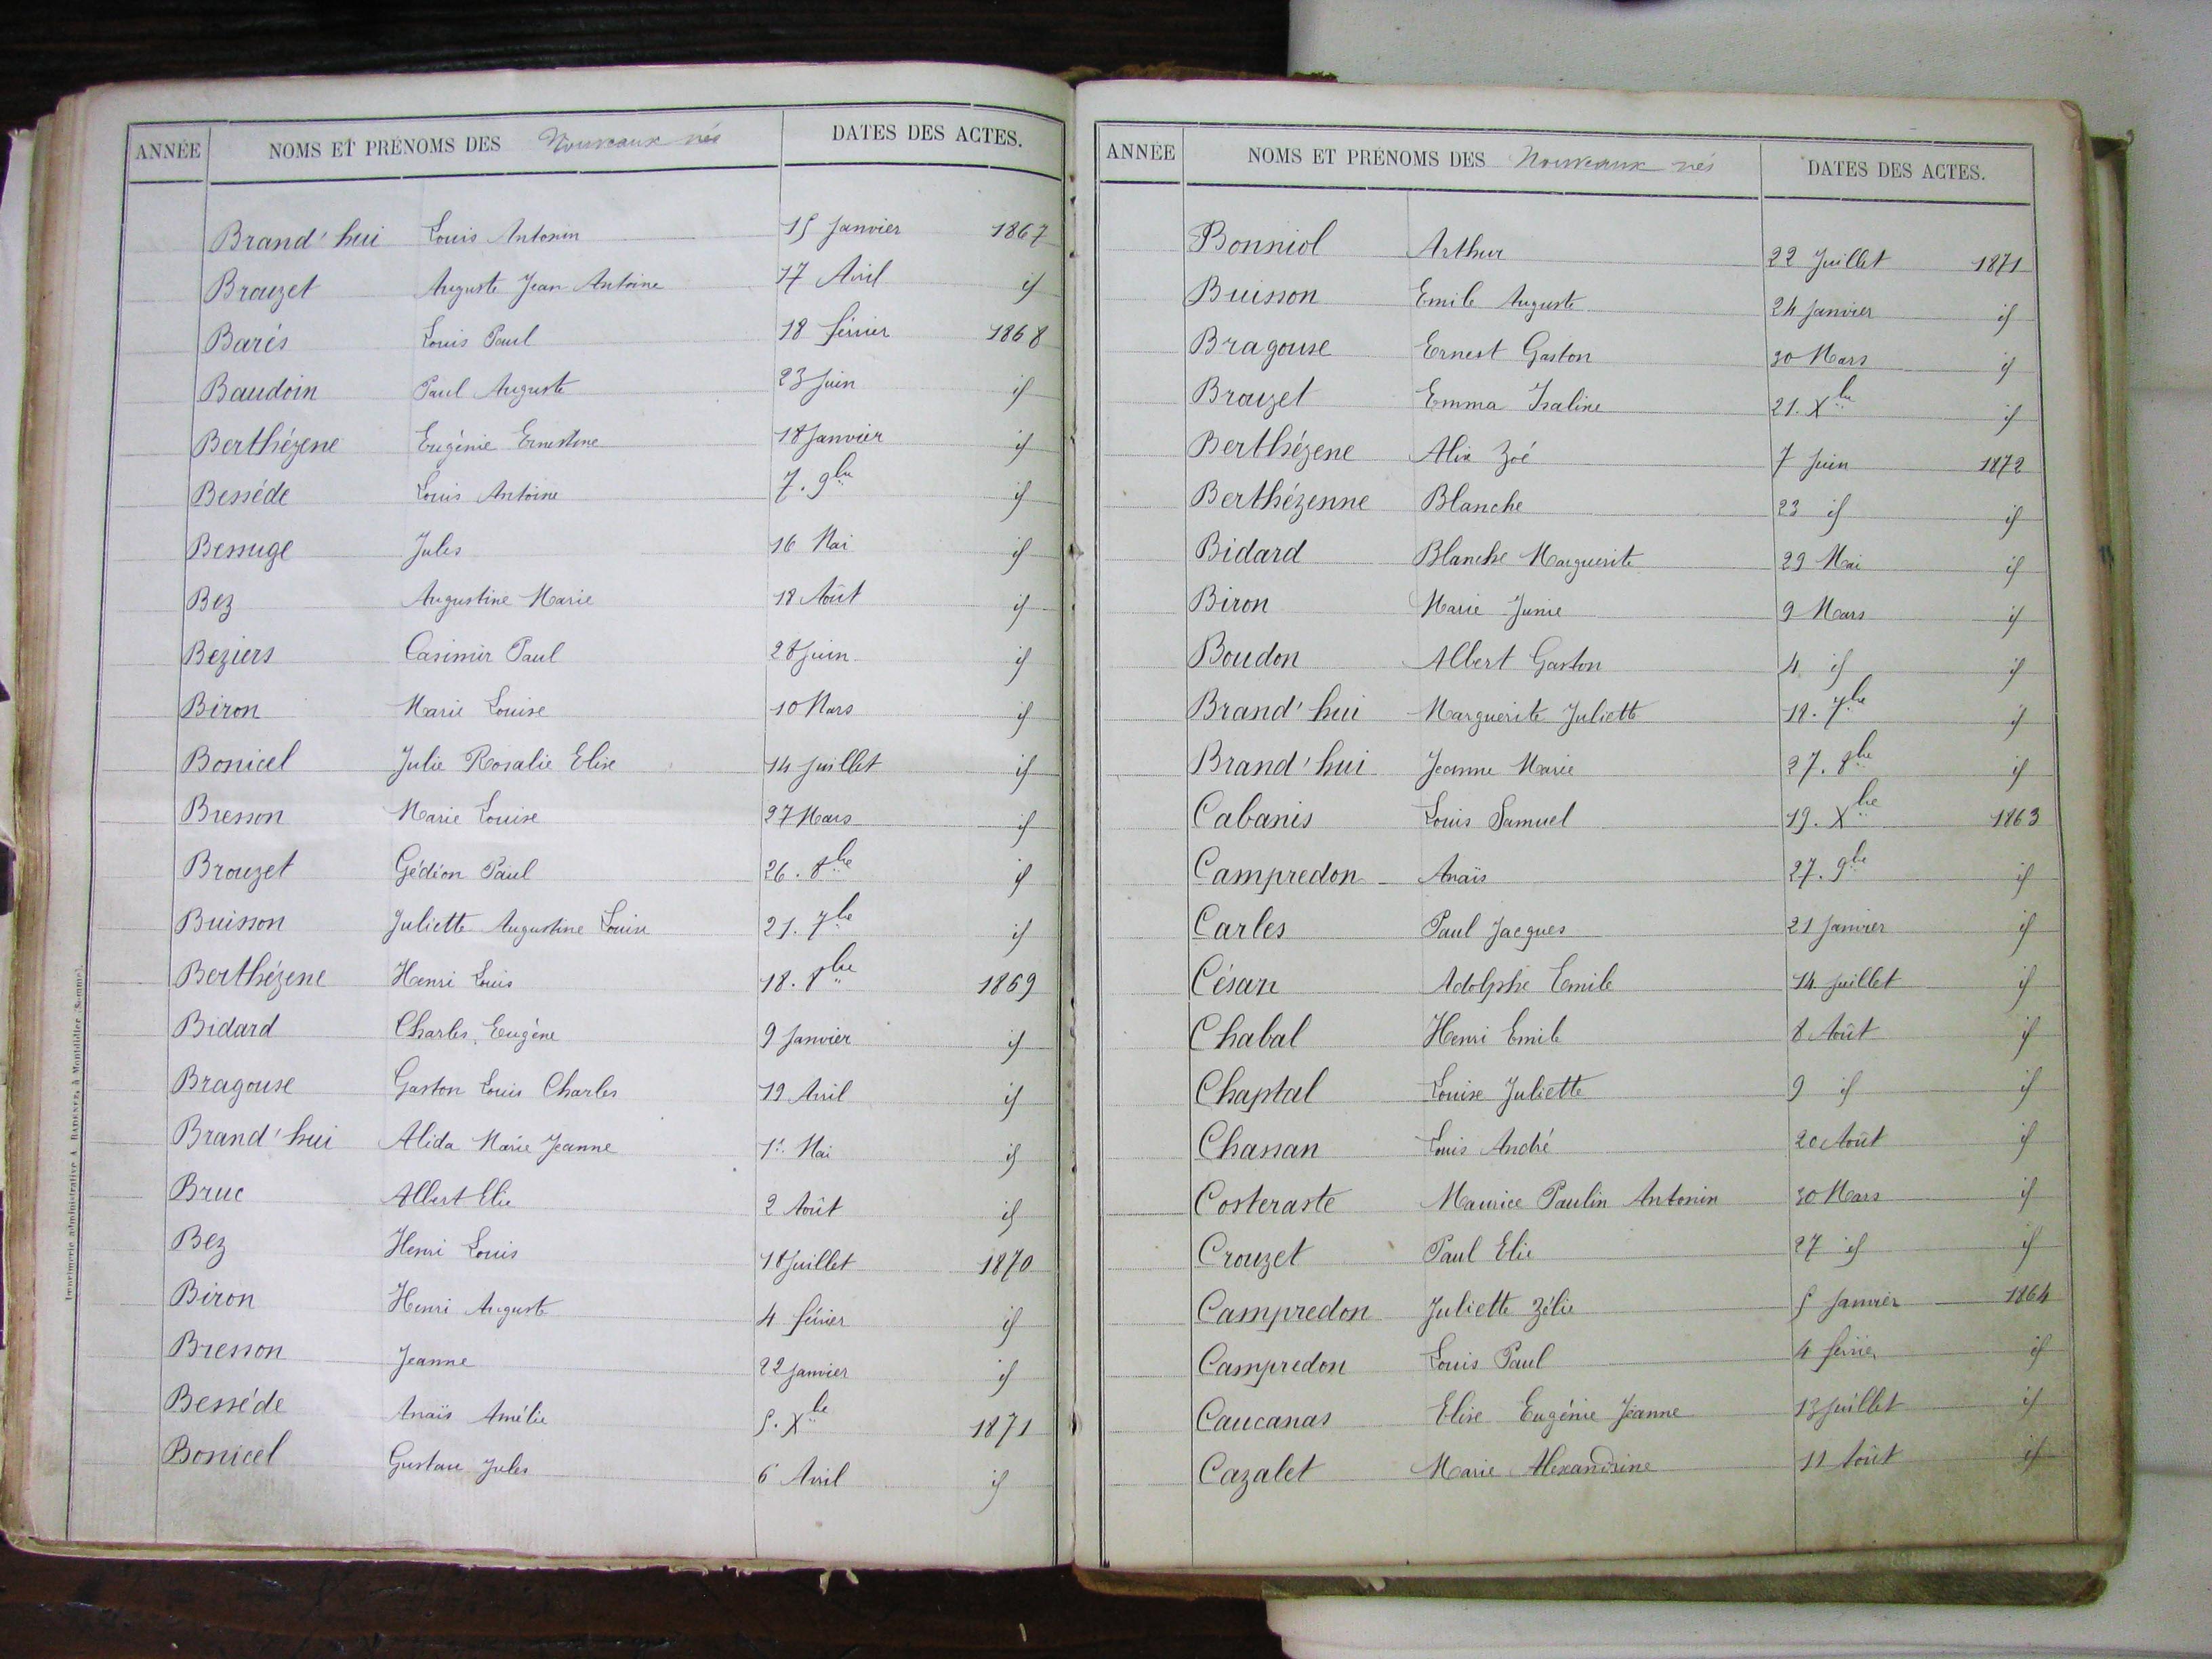 ANNÉE NOMS ET PRÉNOMS DES Nouveaux nés DATES DES ACTES.
Brand'hui Louis Antonin 15 Janvier 1867
Brouzet Auguste Jean Antoine 17 Avril id
Barés Louis Paul 18 février 1868
Baudoin Paul Auguste 23 Juin id
Berthézene Eugénie Ernestine 18 Janvier id
Besséde Louis Antoine 7. 9bre id
Bessuge Jules 16 Mai id
Bez Augustine Marie 18 Août id
Beziers Casimir Paul 28 Juin id
Biron Marie Louise 10 Mars id
Bonicel Julie Rosalie Elise 14 Juillet id
Bresson Marie Louise 27 Mars id
Brouzet Gédéon Paul 26. 8bre id
Buisson Juliette Augustine Louise 21. 7bre id
Berthézene Henri Louis 18. 8bre 1869
Bidard Charles Eugène 9 Janvier id
Bragouse Gaston Louis Charles 19 Avril id
Brand'hui Alida Marie Jeanne 1er Mai id
Bruc Albert Elie 2 Août id
Bez Henri Louis 18 Juillet 1870
Biron Henri Auguste 4 février id
Bresson Jeanne 22 Janvier id
Besséde Anaïs Amélie 5. Xbre 1871
Bonicel Gustave Jules 6 Avril id
Imprimerie administrative A. RADENEZ, à Montdidier (Somme).
ANNÉE NOMS ET PRÉNOMS DES Nouveaux nés DATES DES ACTES.
Bonniol Arthur 22 Juillet 1871
Buisson Emile Auguste 24 Janvier id
Bragouse Ernest Gaston 30 Mars id
Brouzet Emma Isaline 21. Xbre id
Berthézene Alix Zoé 7 Juin 1872
Berthézenne Blanche 23 id id
Bidard Blanche Marguerite 29 Mai id
Biron Marie Junie 9 Mars id
Boudon Albert Gaston 4 id id
Brand'hui Marguerite Juliette 18. 7bre id
Brand'hui Jeanne Marie 27. 8bre id
Cabanis Louis Samuel 19. Xbre 1863
Campredon Anaïs 27. 9bre id
Carles Paul Jacques 21 Janvier id
César Adolphe Emile 14 Juillet id
Chabal Henri Emile 8 Août id
Chaptal Louise Juliette 9 id id
Chassan Louis André 20 Août id
Costeraste Maurice Paulin Antonin 30 Mars id
Crouzet Paul Elie 27 id id
Campredon Juliette Zélie 5 Janvier 1864
Campredon Louis Paul 4 février id
Caucanas Elise Eugénie Jeanne 13 Juillet id
Cazalet Marie Alexandrine 11 Août id